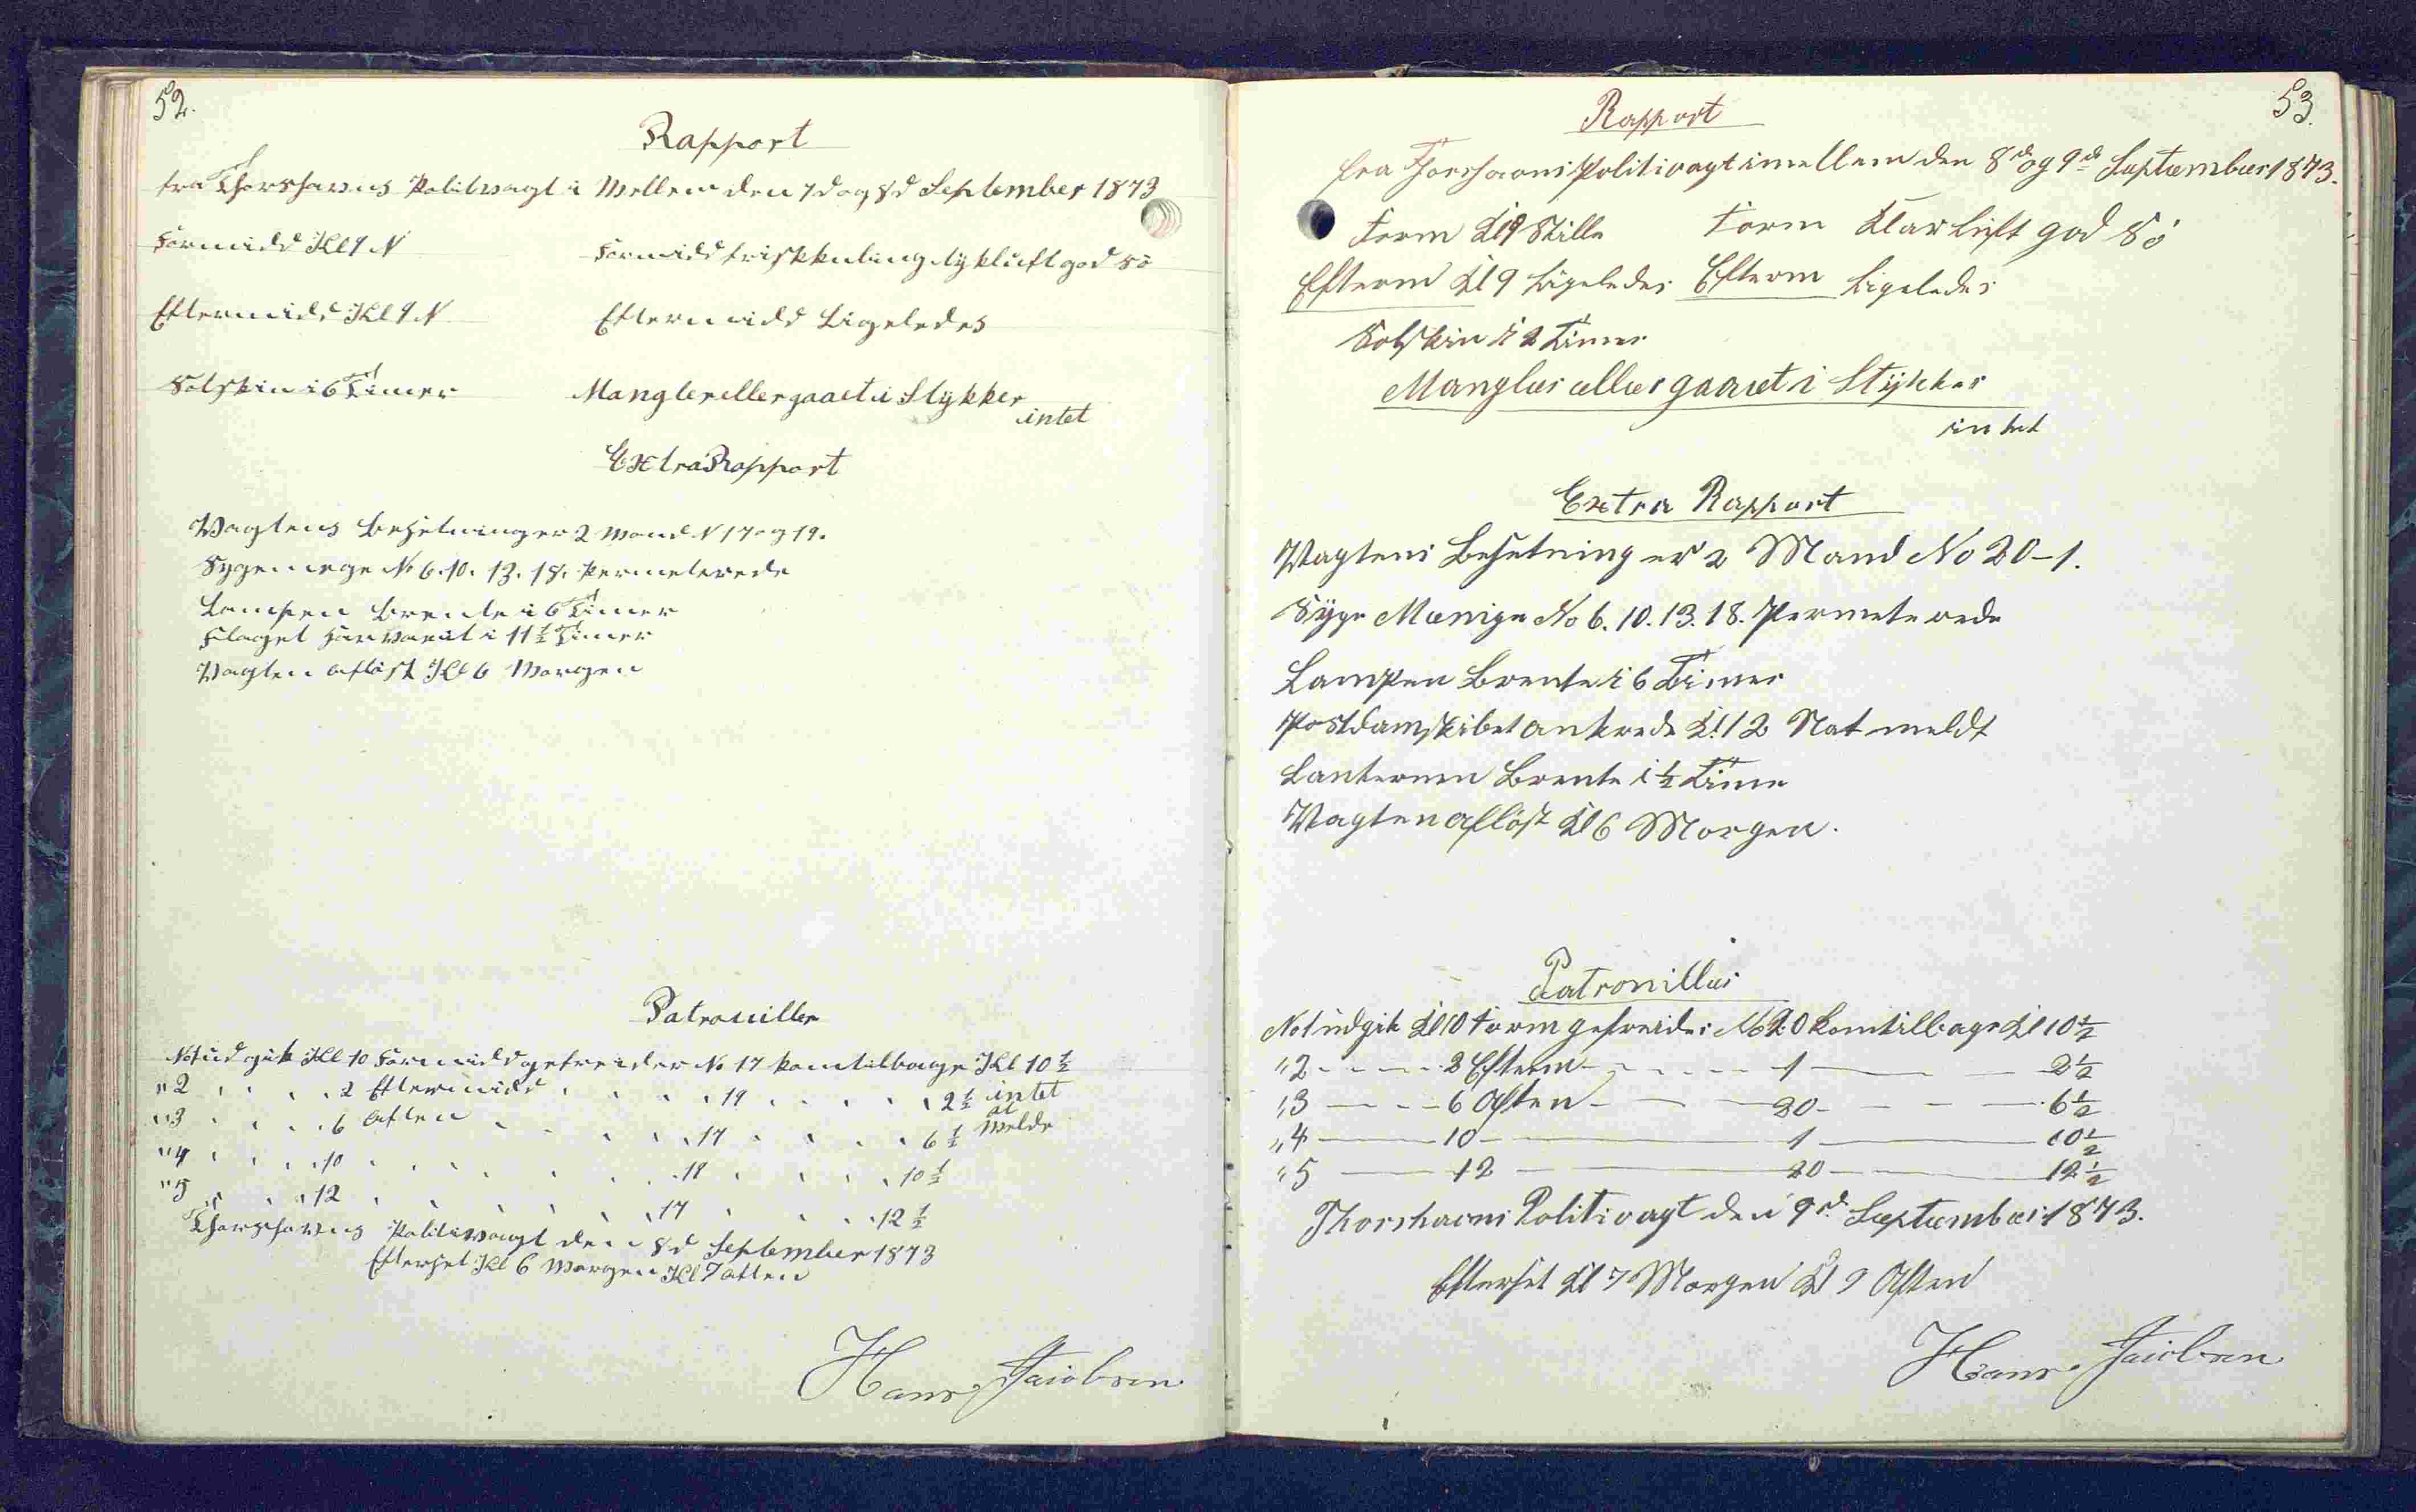 52.
Rapport
fra Thorshavns Politivagt i Mellem den 7d og 8d September 1873
Formidd Kl 9 N Formidd friskkuling tykluft god Sö
Eftermidd Kl 9 N Eftermidd Ligeledes
Solskin i 6 Timer Mangler eller gaaet i Stykker
intet
Extra Rapport
Vagtens Besetninger 2 Mand N 17 og 19.
Syge menge No 6. 10. 13. 18. Permeterede
Lampen brente i 6 Timer
Flaget har vaeret i 11 ½ Timer
Vagten aflöst Kl 6 Morgen
Patrouiller
No 1 udgik Kl 10 Formidd gefreider No 17 kom tilbage Kl 10 ½
" 2 2 Eftermidd 19 2 ½ intet
" 3 6 Aften 17 6 ½ at Melde
" 4 10 18 10 ½
" 5 12 17 12 ½
Thorshavns Politivagt den 8d September 1873
Efterset Kl 6 Morgen Kl 7 aften
Hans Jacobsen
53.
Rapport
fra Thorshavns Politivagt imellem den 8d og 9d September 1873.
Form Kl 9 Stille Form Klar Luft god Sö
Efterm Kl 9 Ligeledes Efterm Ligeledes
Solskin i 2 Timer
Mangler eller gaaet i Stykker
intet
Extra Rapport
Vagtens Besetning er 2 Mand No 20 - 1.
Syge Menige No 6. 10. 13. 18. Permeterede
Lampen Brente i 6 Timer
Postdamskibet ankrede Kl 12 Nat meldt
Lanternen Brente i ½ Time
Vagten aflöst Kl 6 Morgen.
Patrouiller
No 1 udgik Kl 10 Form gefreider No 20 kom tilbage Kl 10 ½
" 2 - - - - 2 Efterm - - - - - 1 - - 2 ½
" 3 - - - 6 Aften - - - 20 - - - - 6 ½
" 4 - 10 - 1 - 10 ½
" 5 - 12 - 20 - 12 ½
Thorshavns Politivagt den 9d. September 1873.
Efterset Kl 7 Morgen Kl 9 Aften
Hans Jacobsen